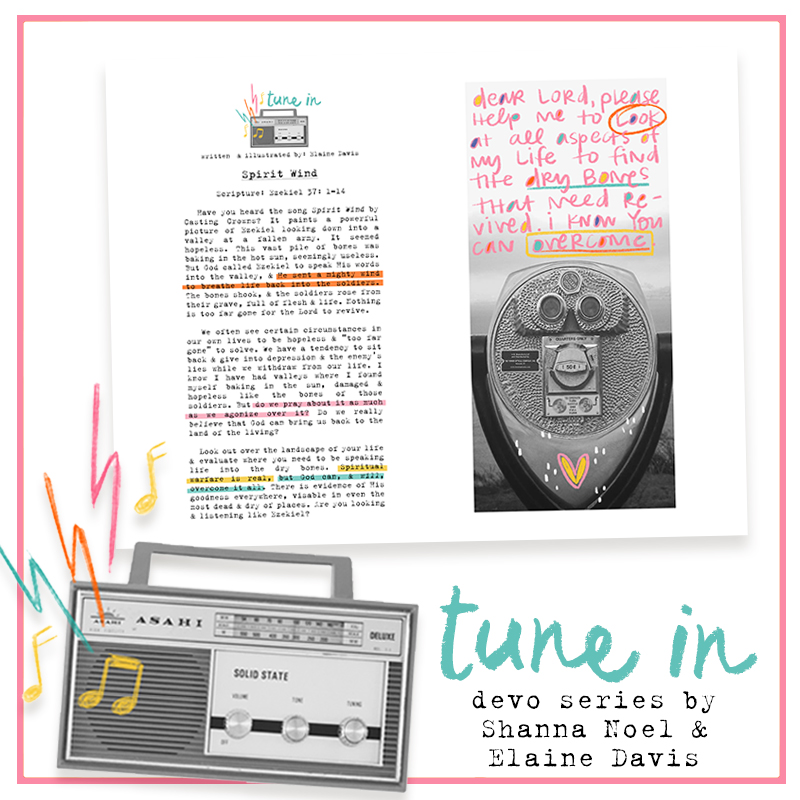 tune in
written & illustrated by: Elaine Davis
Spirit Wind
Scripture: Ezekiel 37: 1-14
Have you heard the song Spirit Wind by
Casting Crowns? It paints a powerful
picture of Ezekiel looking down into a
valley at a fallen army. It seemed
hopeless. This vast pile of bones was
baking in the hot sun, seemingly useless.
But God called Ezekiel to speak His words
into the valley, & He sent a mighty wind
to breathe life back into the soldiers.
The bones shook, & the soldiers rose from
their grave, full of flesh & life. Nothing
is too far gone for the Lord to revive.
We often see certain circumstances in
our own lives to be hopeless & "too far
gone" to solve. We have a tendency to sit
back & give into depression & the enemy's
lies while we withdraw from our life. I
know I have had valleys where I found
myself baking in the sun, damaged &
hopeless like the bones of those
soldiers. But do we pray about it as much
as we agonize over it? Do we really
believe that God can bring us back to the
land of the living?
Look out over the landscape of your life
& evaluate where you need to be speaking
life into the dry bones. Spiritual
warfare is real, but God can, & will,
overcome it all. There is evidence of His
goodness everywhere, visable in even the
most dead & dry of places. Are you looking
& listening like Ezekiel?
dear Lord, please
Help me to Look
at all aspects of
my Life to find
the dry Bones
that need re-
vived. i know You
can overcome.
QUARTERS ONLY
50¢
ASAHI
ASAHI
DELUXE
SOLID STATE
VOLUME
TONE
TUNING
OFF
tune in
devo series by
Shanna Noel &
Elaine Davis